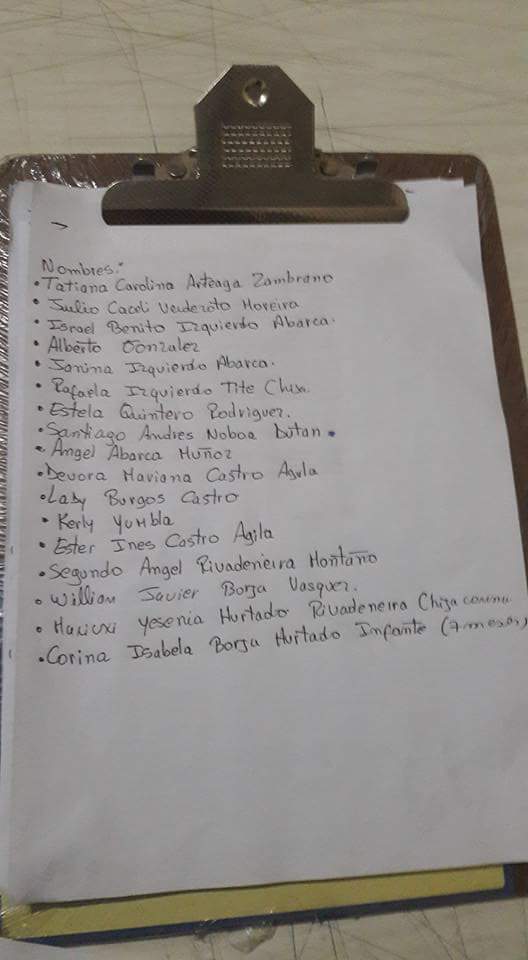 Nombres:
• Tatiana Carolina Arteaga Zambrano
• Julio Cacoli Verderoto Moreira
• Israel Benito Izquierdo Abarca.
• Alberto Gonzalez
• Janina Izquierdo Abarca.
• Rafaela Izquierdo Tite
• Estela Quintero Rodriguez.
• Santiago Andres Noboa Dutan.
• Angel Abarca Muñoz
• Devora Mariana Castro Agula
• Lady Burgos Castro
• Kerly Yumbla
• Ester Ines Castro Agila
• Segundo Angel Rivadeneira Montaño
• William Javier Borja Vasquez.
• Yesenia Hurtado Rivadeneira
• Corina Isabela Borja Hurtado Infante (7 meses)